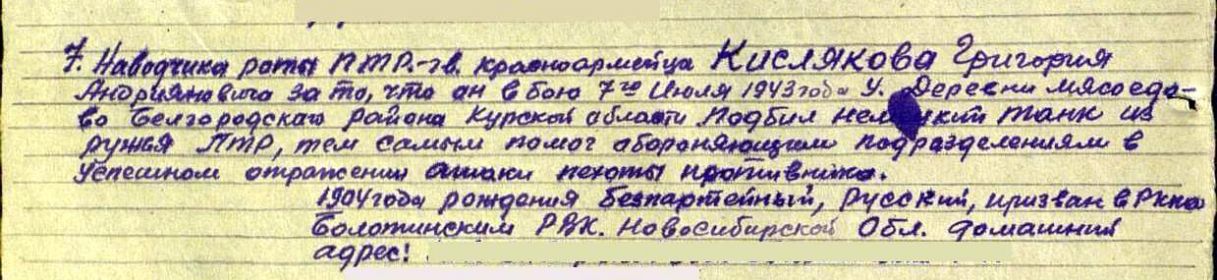 7. Наводчика роты ПТР.-гв. красноармейца КИСЛЯКОВА Григория
Андрияновича за то, что он в бою 7го Июля 1943 года У. Деревни Мясоедо-
во Белгородскаго района Курской области Подбил немецкий танк из
ружья ПТР, тем самым помог обороняющим подразделениям в
Успешном отражении атаки пехоты противника.
1904 года рождения безпартейный, русский, призван в РККА
Болотнинским РВК. Новосибирской Обл. домашний
адрес: